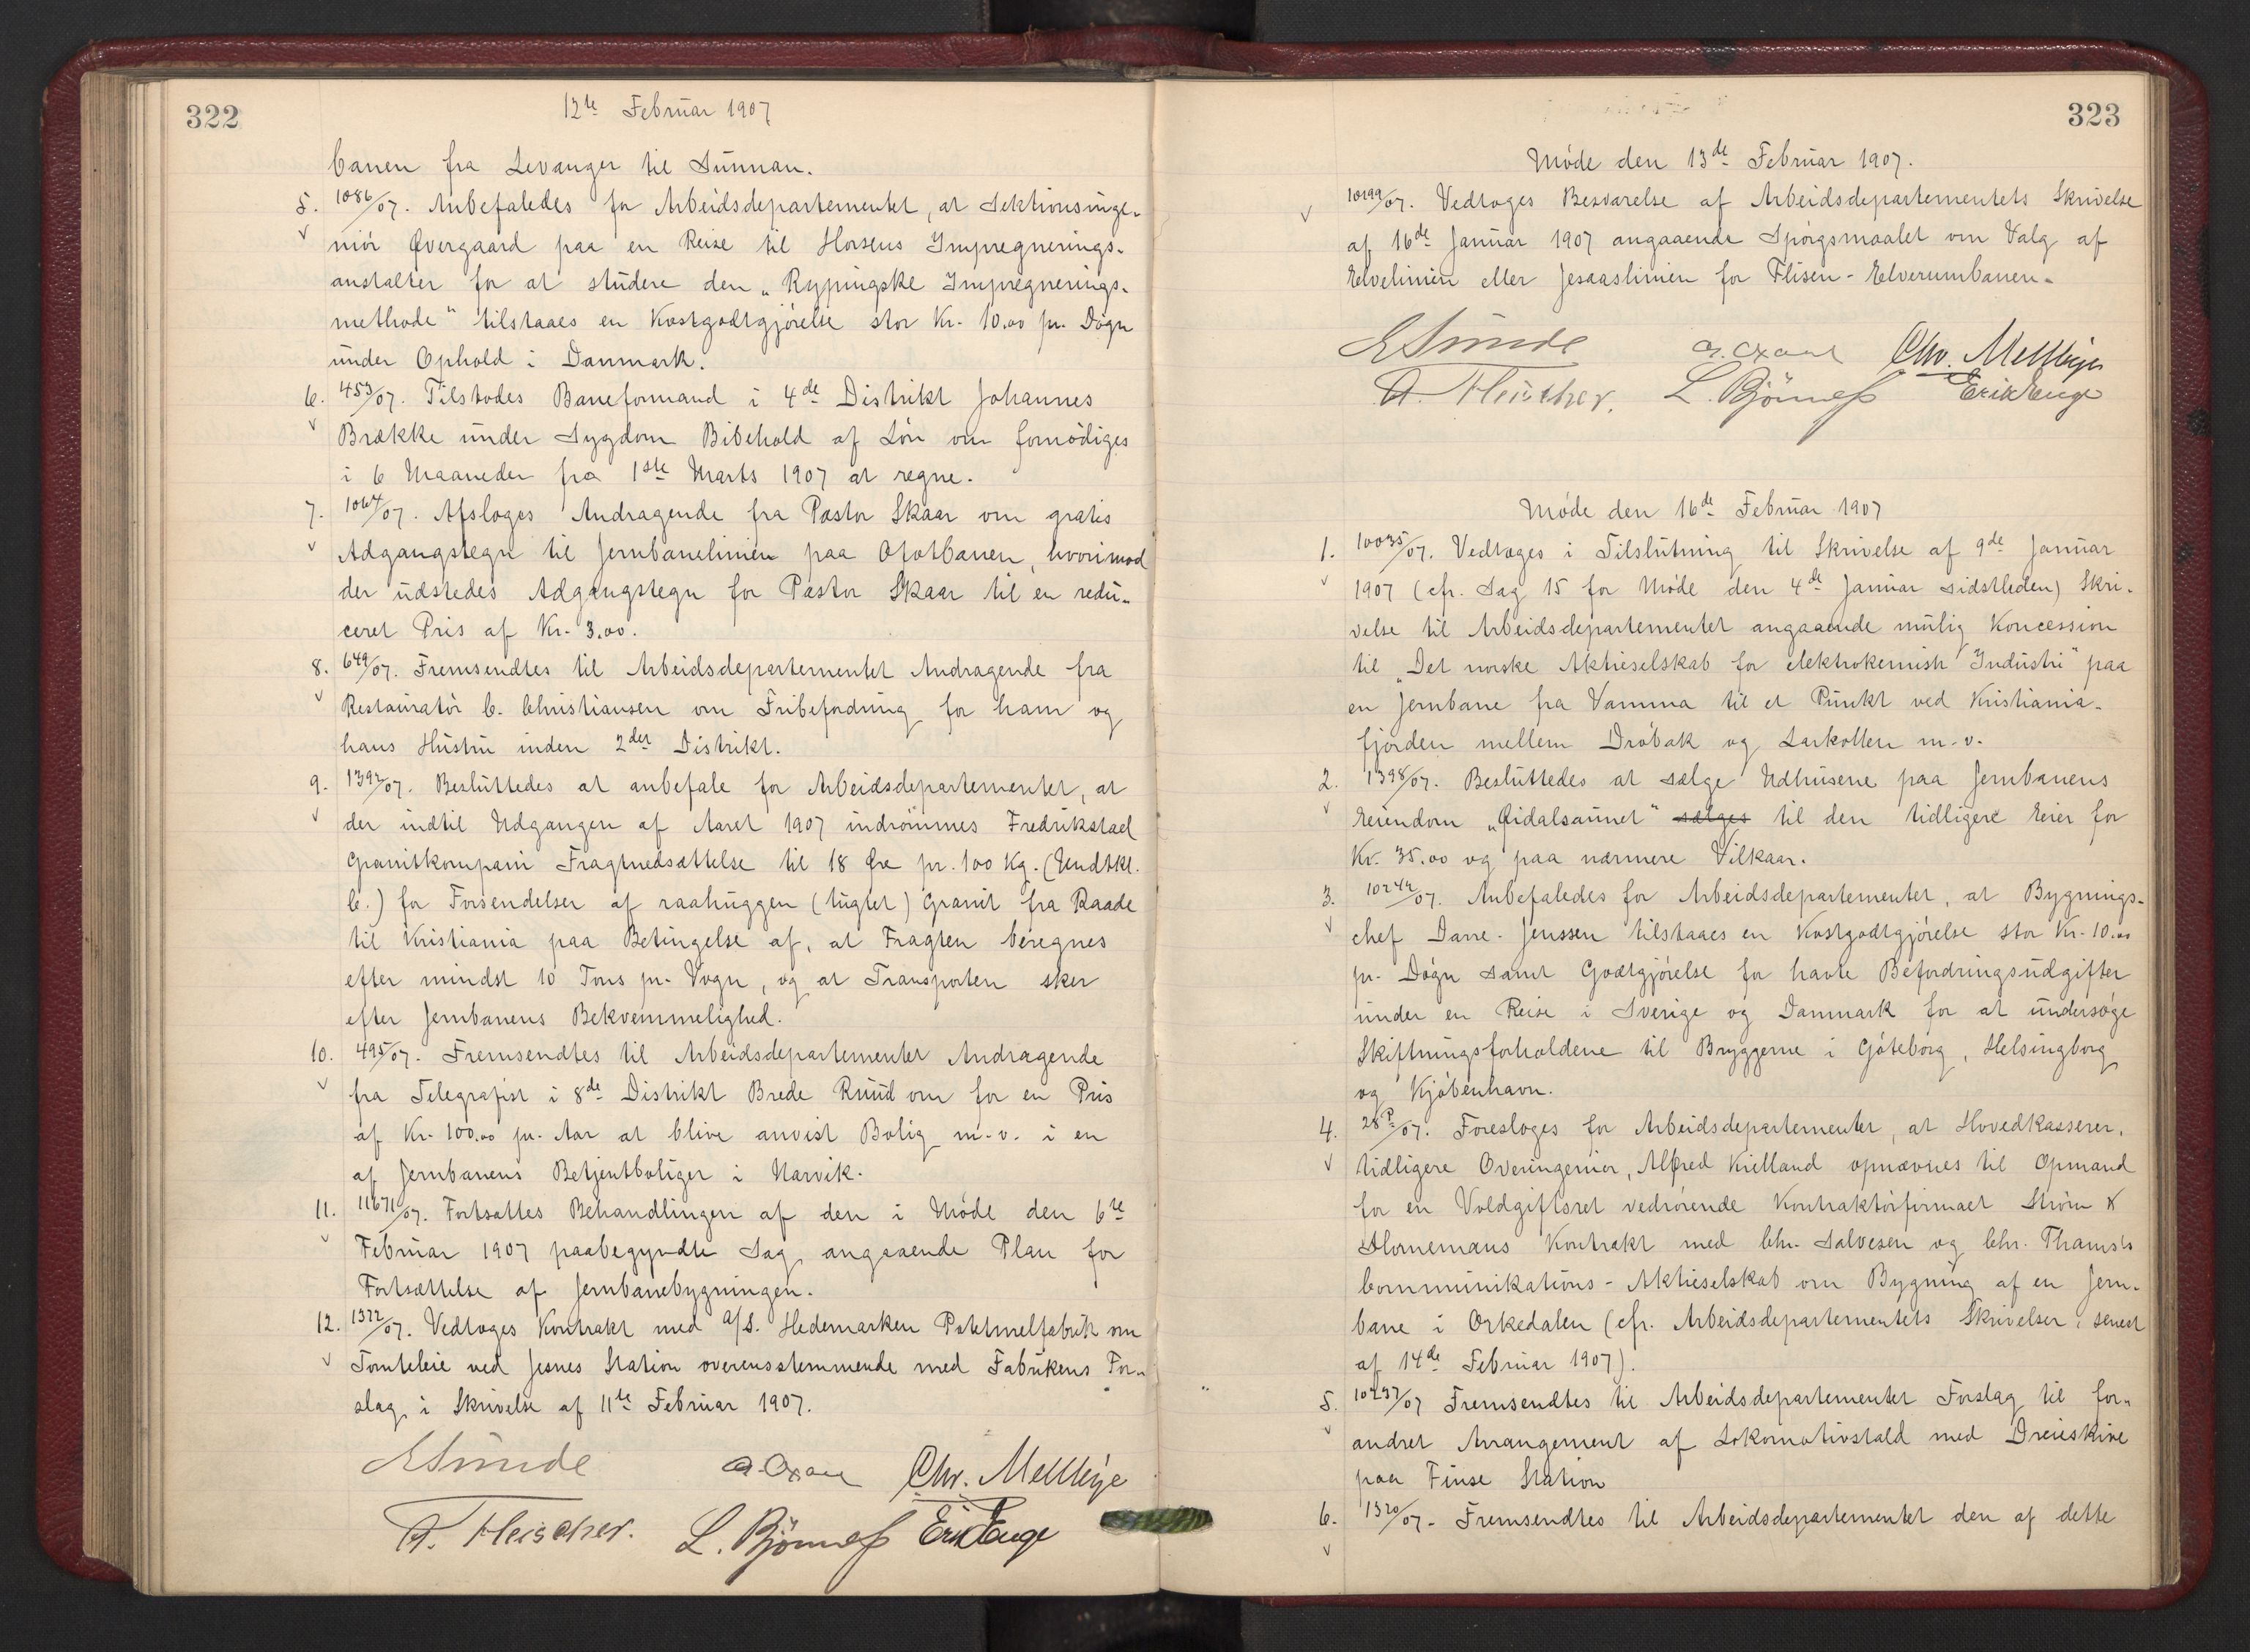 322
12te Februar 1907
banen fra Levanger til Sunnan.
5. 1086/07. Anbefaledes for Arbeidsdepartementet, at Sektionsinge-
niör Øvergaard paa en Reise til Horsens Imprægnerings-
anstalter for at studere den „Rypingske Imprægnerings-
methode" tilstaaes en Kostgodtgjörelse stor Kr. 10.00 pr. Dögn
under Ophold i Danmark.
6. 453/07. Tilstodes Baneformand i 4de Distrikt Johannes
Brække under Sygdom Bibehold af Lön om fornödiges
i 6 Maaneder fra 1ste Marts 1907 at regne.
7. 1064/07. Afsloges Andragende fra Pastor Skaar om gratis
Adgangstegn til Jernbanelinien paa Ofotbanen, hvorimod
der udstedes Adgangstegn for Pastor Skaar til en redu-
ceret Pris af Kr. 3.00.
8. 649/07. Fremsendtes til Arbeidsdepartementet Andragende fra
Restauratör C. Christiansen om Fribefordring for ham og
hans Hustru inden 2det Distrikt.
9. 1392/07. Besluttedes at anbefale for Arbeidsdepartementet, at
der indtil Udgangen af Aaret 1907 indrömmes Fredrikstad
Granitkompani Fragtnedsættelse til 18 Øre pr. 100 Kg. (Undtkl.
C.) for Forsendelser af raahuggen (tugtet) Granit fra Raade
til Kristiania paa Betingelse af, at Fragten beregnes
efter mindst 10 Tons pr. Vogn, og at Transporten sker
efter Jernbanens Bekvemmelighed.
10. 495/07. Fremsendtes til Arbeidsdepartementet Andragende
fra Telegrafist i 8de Distrikt Brede Ruud om for en Pris
af Kr. 100.00 pr. Aar at blive anvist Bolig m.v. i en
af Jernbanens Betjentboliger i Narvik.
11. 11671/07. Fortsattes Behandlingen af den i Möde den 6te
Februar 1907 paabegyndte Sag angaaende Plan for
Fortsættelse af Jernbanebygningen.
12. 1322/07. Vedtoges Kontrakt med A/S. Hedemarken Potetmelfabrik om
Tomteleie ved Jesnes Station overensstemmende med Fabrikens For-
slag i Skrivelse af 11te Februar 1907.
ESunde A. Oxaal Chr. Mellbye
A. Fleischer. L. Björnness Erik Enge
323
Möde den 13de Februar 1907.
10199/07. Vedtoges Besvarelse af Arbeidsdepartementets Skrivelse
af 16de Januar 1907 angaaende Spörgsmaalet om Valg af
Elvelinien eller Jesaaslinien for Flisen-Elverumbanen.
ESunde A. Oxaal Chr. Mellbye
A. Fleischer. L. Björnness Erik Enge
Möde den 16de Februar 1907
1. 10035/07. Vedtoges i Tilslutning til Skrivelse af 9de Januar
1907 (cfr. Sag 15 for Möde den 4de Januar sidstleden) Skri-
velse til Arbeidsdepartementet angaaende mulig Koncession
til „Det norske Aktieselskab for elektrokemisk Industri" paa
en Jernbane fra Vamma til et Punkt ved Kristiania-
fjorden mellem Dröbak og Larkollen m.v.
2. 1398/07. Besluttedes at sælge Udhusene paa Jernbanens
Eiendom „Eidalsaunet" sælges til den tidligere Eier for
Kr. 35.00 og paa nærmere Vilkaar.
3. 10242/07. Anbefaledes for Arbeidsdepartementet, at Bygnings-
chef Darre-Jenssen tilstaaes en Kostgodtgjörelse stor Kr. 10.00
pr. Dögn samt Godtgjörelse for havte Befordringsudgifter
under en Reise i Sverige og Danmark for at undersöge
Skiftningsforholdene til Bryggerne i Göteborg, Helsingborg
og Kjöbenhavn.
4. 28P/07. Foresloges for Arbeidsdepartementet, at Hovedkasserer,
tidligere Overingeniør, Alfred Kielland opnævnes til Opmand
for en Voldgiftsret vedrörende Kontraktörfirmaet Ström &
Hornemans Kontrakt med Chr. Salvesen og Chr. Thams's
Communikations-Aktieselskab om Bygning af en Jern-
bane i Orkedalen (cfr. Arbeidsdepartementets Skrivelser, senest
af 14de Februar 1907).
5. 10237/07 Fremsendtes til Arbeidsdepartementet Forslag til for-
andret Arrangement af Lokomotivstald med Dreieskive
paa Finse Station
6. 1320/07. Fremsendtes til Arbeidsdepartementet den af dette